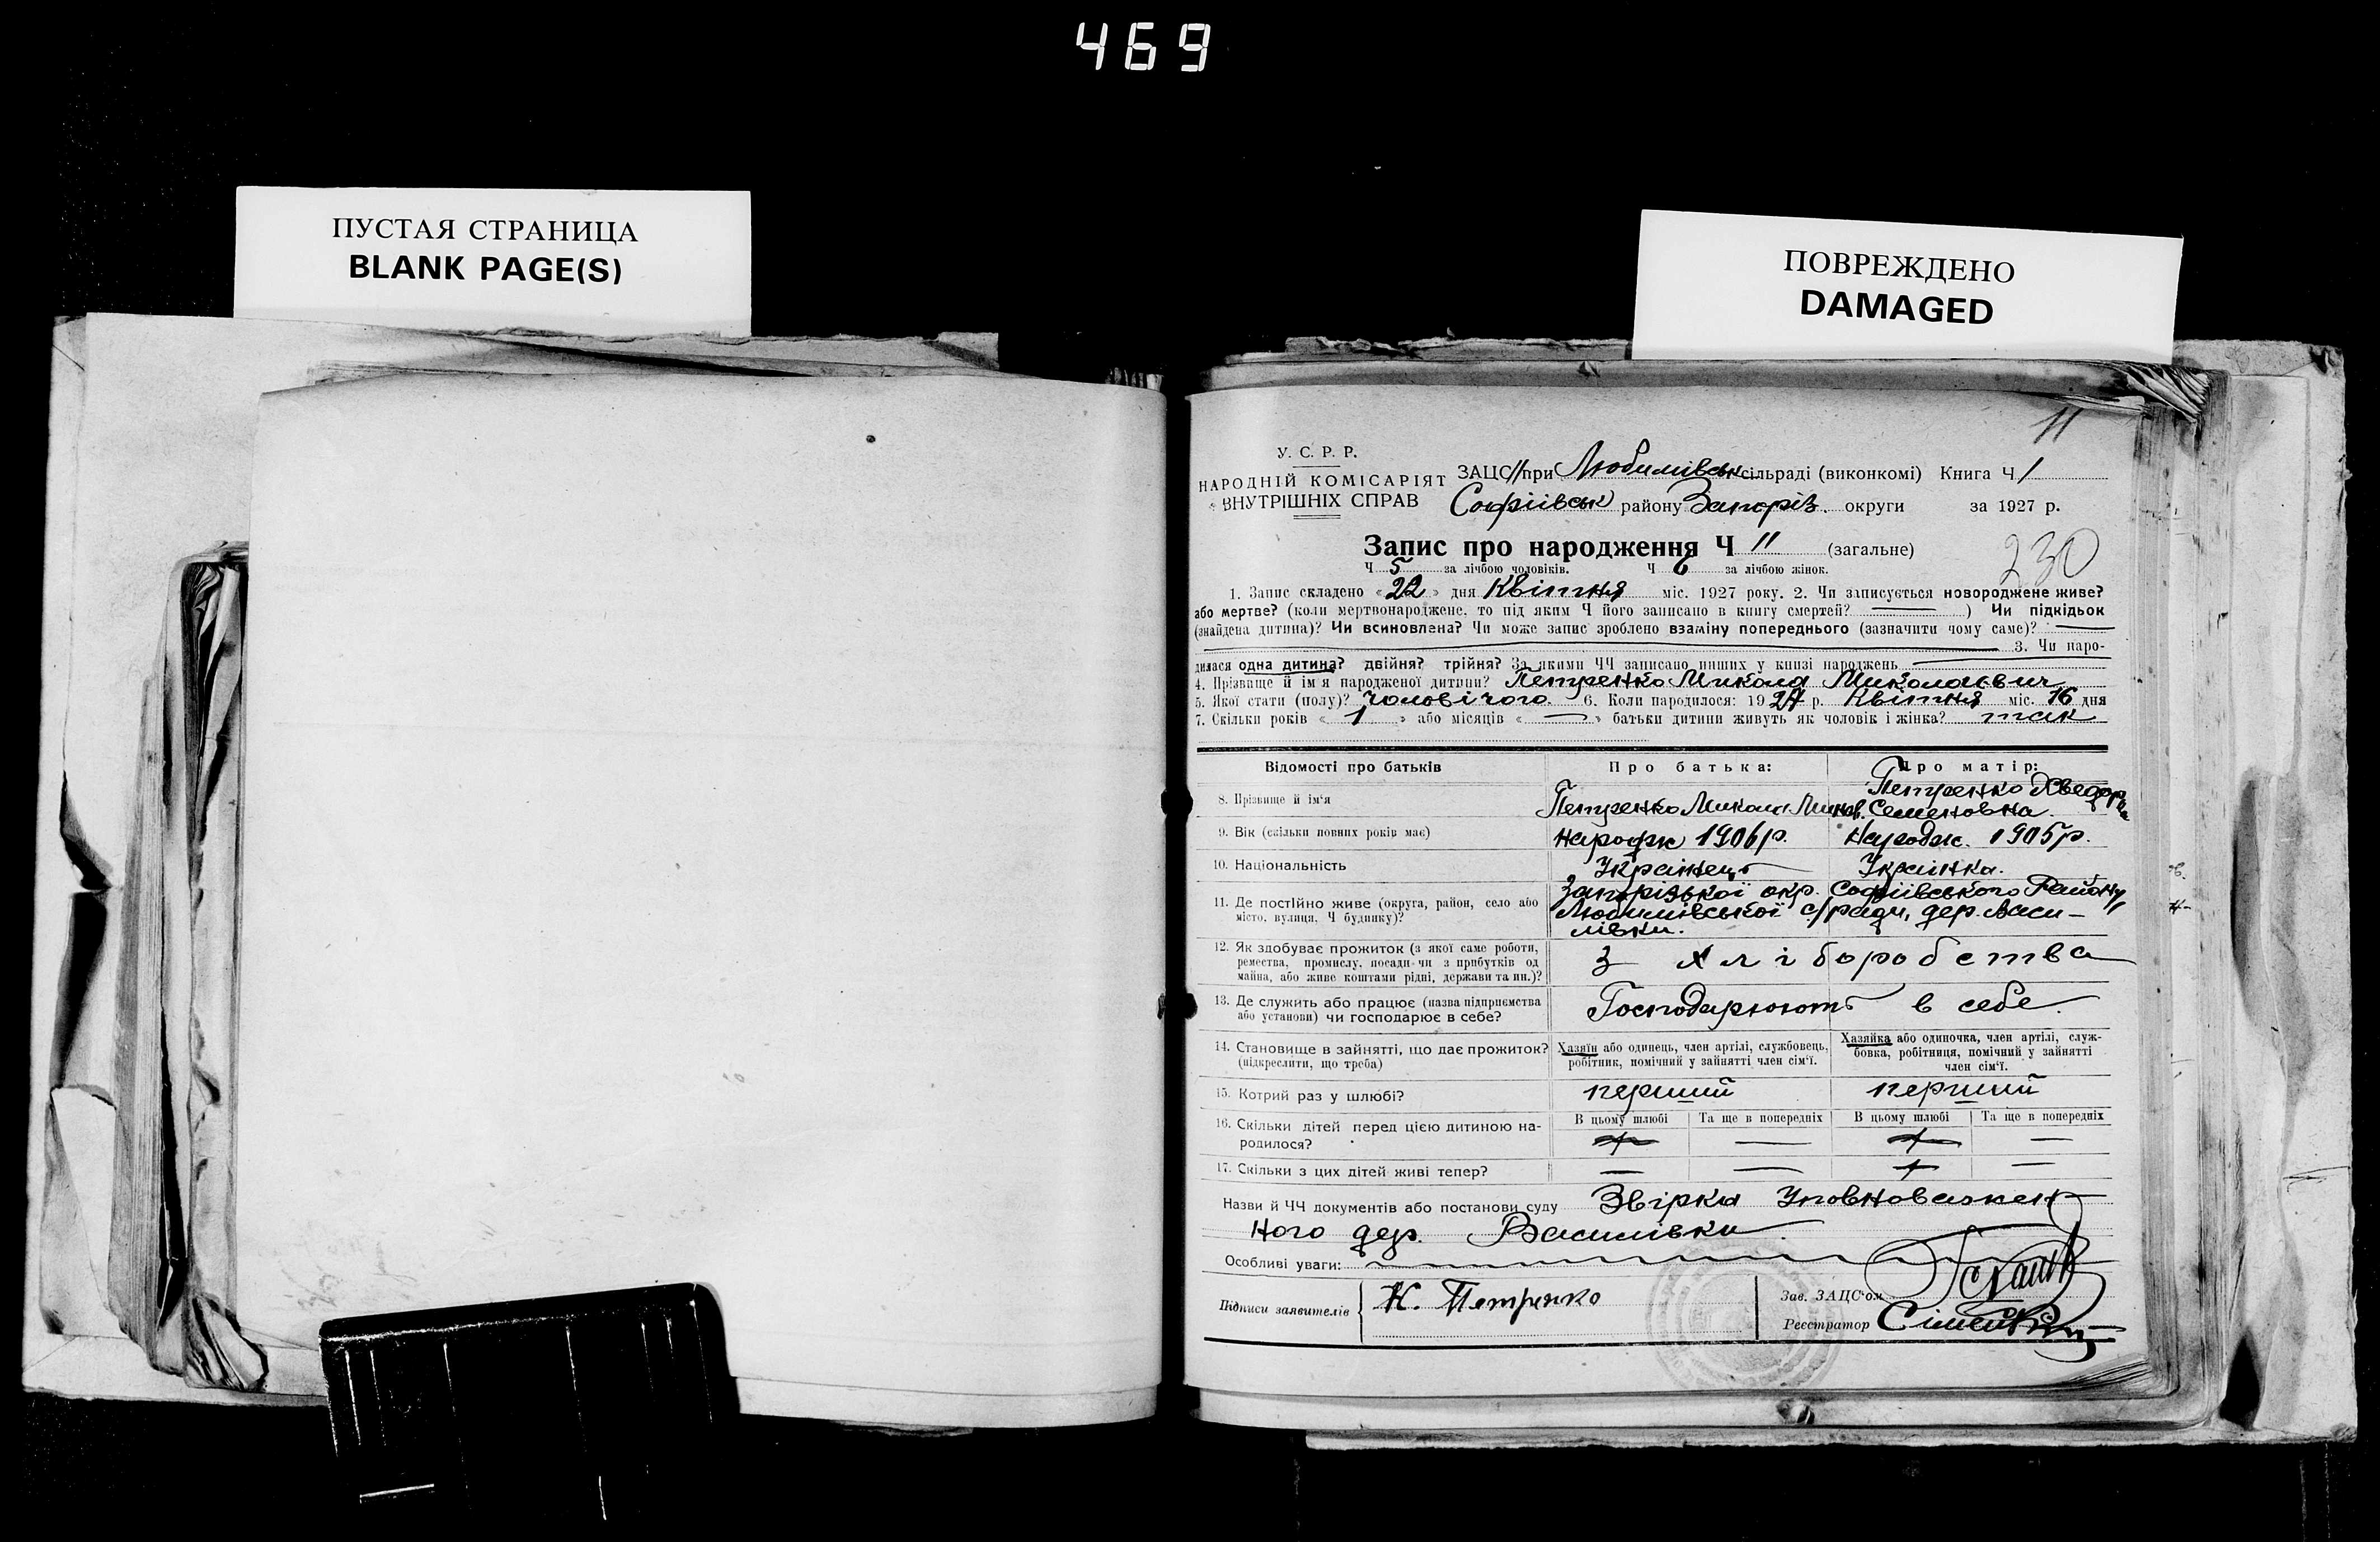 469
ПУСТАЯ СТРАНИЦА
BLANK PAGE(S)
ПОВРЕЖДЕНО
DAMAGED
11
У. С. Р. Р.
НАРОДНІЙ КОМІСАРІЯТ
ВНУТРІШНІХ СПРАВ
ЗАЦС // при Любимівськ сільраді (виконкомі) Книга Ч 1
Софіївськ району Запоріз. округи за 1927 р.
Запис про народження Ч 11 (загальне)
230
Ч 5 за лічбою чоловіків. Ч 6 за лічбою жінок.
1. Запис складено « 22 » дня Квітня міс. 1927 року. 2. Чи записується новороджене живе?
або мертве? (коли мертвонароджене, то під яким Ч його записано в книгу смертей? ——) Чи підкідьок
(знайдена дитина)? Чи всиновлена? Чи може запис зроблено взаміну попереднього (зазначити чому саме)? ——
3. Чи наро-
дилася одна дитина? двійня? трійня? За якими ЧЧ записано инших у книзі народжень
4. Прізвище й ім'я народженої дитини? Петренко Микола Миколаєвич
5. Якої стати (полу)? Чоловічого. 6. Коли народилося: 1927 р. Квітня міс. 16 дня
7. Скільки років « 1 » або місяців « — » батьки дитини живуть як чоловік і жінка? так
Відомості про батьків Про батька: Про матір:
8. Прізвище й ім'я Петренко Микола Петренко
Семеновна
9. Вік (скільки повних років має) Народж 1906 р. Народж. 1905 р.
10. Національність Українець Українка.
11. Де постійно живе (округа, район, село або
місто, вулиця, Ч будинку)?
Запорізької окр. Софіївського Району
Любимівської с/ради, дер. Васи-
лівки.
12. Як здобуває прожиток (з якої саме роботи,
ремества, промислу, посади чи з прибутків од
майна, або живе коштами рідні, держави та ин.)?
З хліборобства
13. Де служить або працює (назва підприємства
або установи) чи господарює в себе?
Господарюють в себе.
14. Становище в зайнятті, що дає прожиток?
(підкреслити, що треба)
Хазяїн або одинець, член артілі, службовець,
робітник, помічний у зайнятті член сім'ї.
Хазяйка або одиночка, член артілі, служ-
бовка, робітниця, помічний у зайнятті
член сім'ї.
15. Котрий раз у шлюбі? перший перший
16. Скільки дітей перед цією дитиною на-
родилося?
В цьому шлюбі Та ще в попередніх В цьому шлюбі Та ще в попередніх
17. Скільки з цих дітей живі тепер?
Назви й ЧЧ документів або постанови суду Звірка Уповноважен
ного дер. Василівки
Особливі уваги:
Підписи заявителів Н. Петренко
Зав. ЗАЦС'ом
Реєстратор